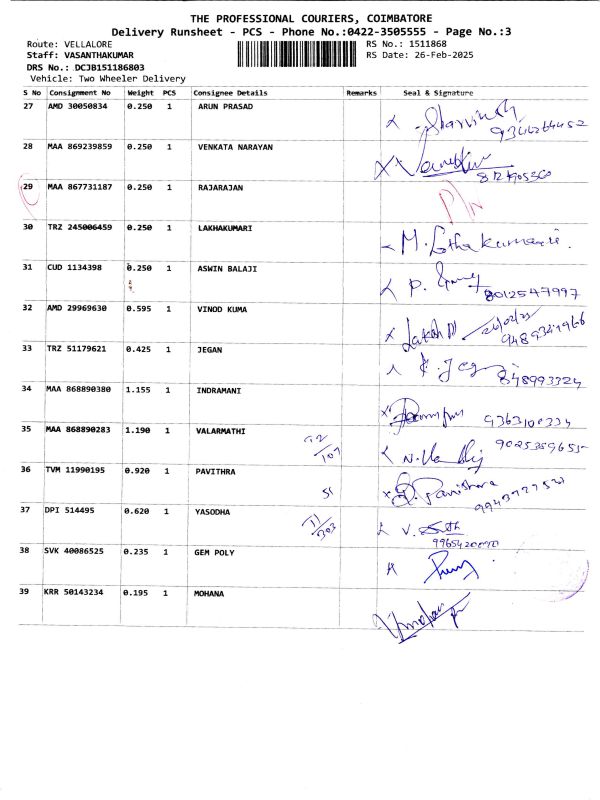 THE PROFESSIONAL COURIERS, COIMBATORE
Delivery Runsheet - PCS - Phone No.:0422-3505555 - Page No.:3
Route: VELLALORE RS No.: 1511868
Staff: VASANTHAKUMAR RS Date: 26-Feb-2025
DRS No.: DCJB151186803
Vehicle: Two Wheeler Delivery
S No Consignment No Weight PCS Consignee Details Remarks Seal & Signature
27 AMD 30050834 0.250 1 ARUN PRASAD
28 MAA 869239859 0.250 1 VENKATA NARAYAN
29 MAA 867731187 0.250 1 RAJARAJAN P/N
30 TRZ 245006459 0.250 1 LAKHAKUMARI
31 CUD 1134398 0.250 1 ASWIN BALAJI 8012547997
32 AMD 29969630 0.595 1 VINOD KUMA
33 TRZ 51179621 0.425 1 JEGAN
34 MAA 868890380 1.155 1 INDRAMANI
35 MAA 868890283 1.190 1 VALARMATHI
36 TVM 11990195 0.920 1 PAVITHRA
37 DPI 514495 0.620 1 YASODHA
38 SVK 40086525 0.235 1 GEM POLY
39 KRR 50143234 0.195 1 MOHANA